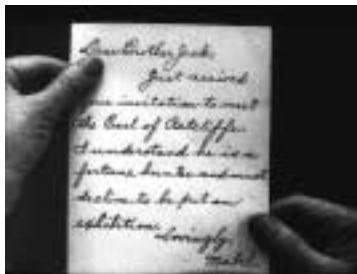 Dear Brother Jack,
Just received
your invitation to meet
the Earl of Ratcliffe.
I understand he is a
fortune hunter and must
decline to be put on
exhibition.
Lovingly,
Mabel.